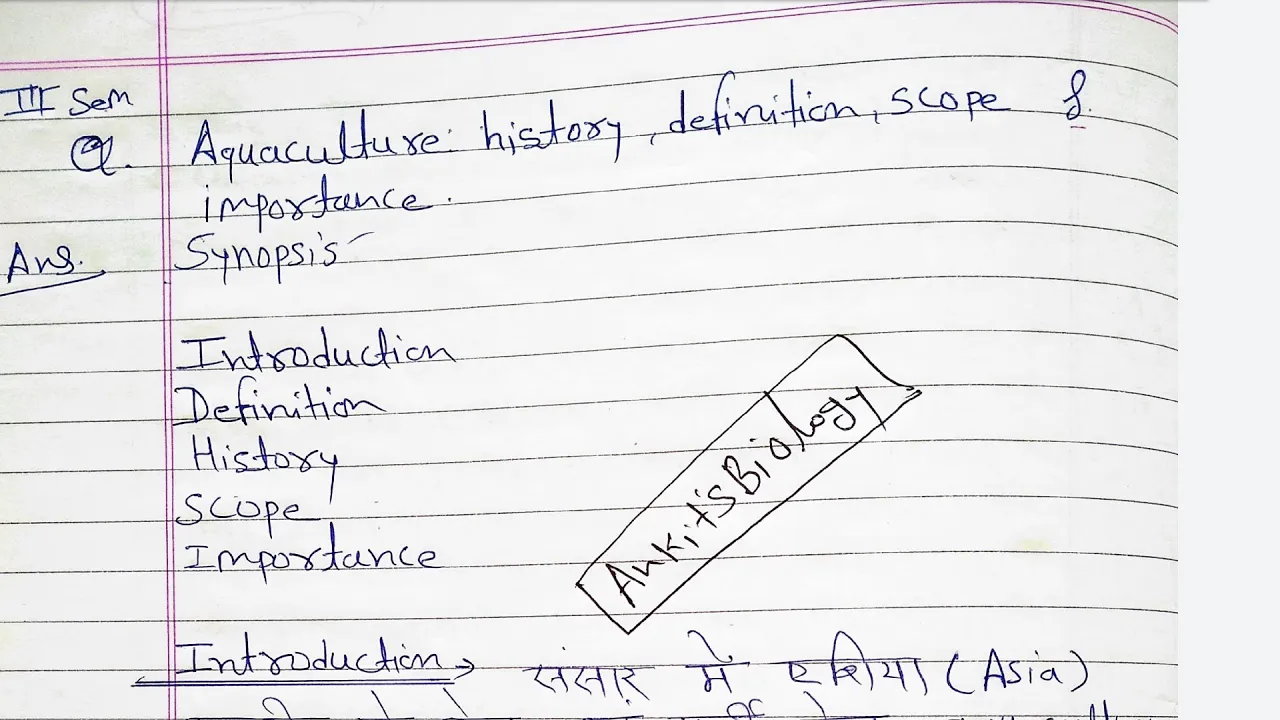 III Sem
Q. Aquaculture: history, definition, scope &
importance.
Ans. Synopsis
Introduction
Definition
History
Scope
Importance
Ankit'sBiology
Introduction → संसार में एशिया (Asia)